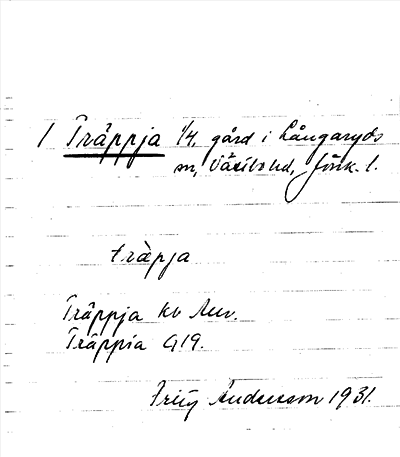 1 Träppja 1/4, gård i Långaryds
sn, Västbo hd, Jönk. l.
träpja
Träppja kv Auv.
Träppia G19.
Fritz Andersson 1931.